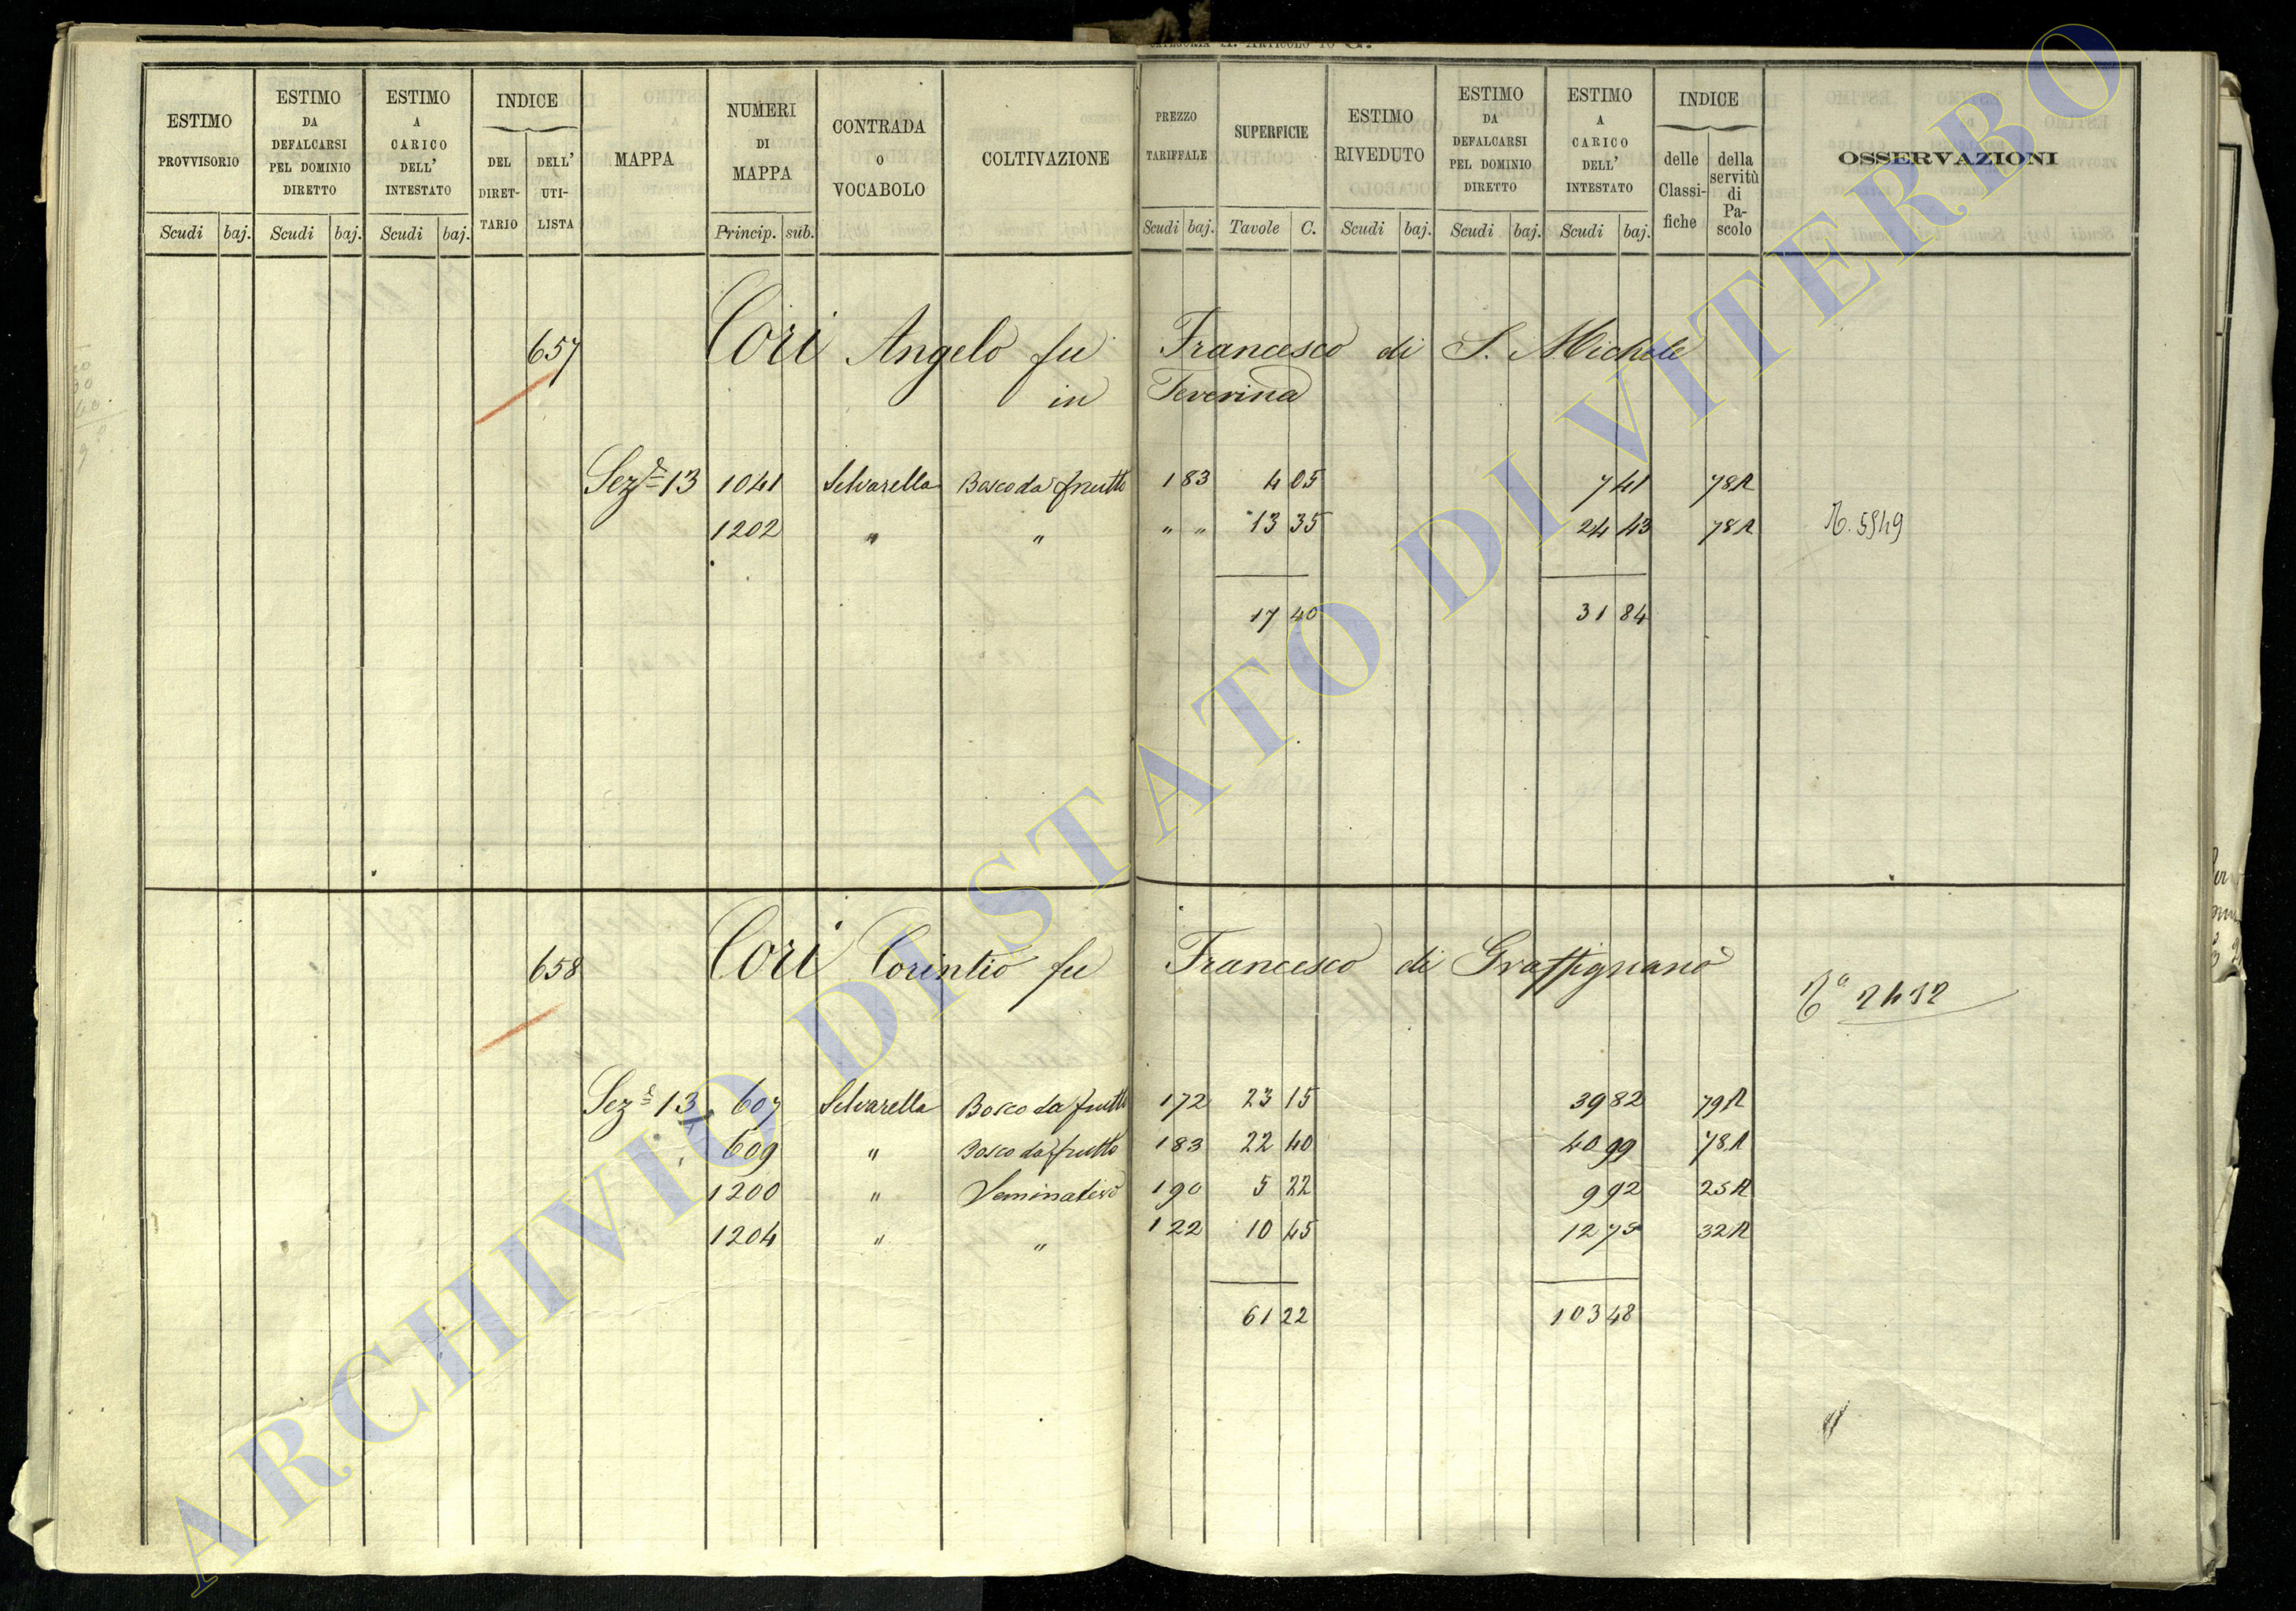 CATEGORIA II. ARTICOLO 10 G.
ESTIMO PROVVISORIO | ESTIMO DA DEFALCARSI PEL DOMINIO DIRETTO | ESTIMO A CARICO DELL' INTESTATO | INDICE DEL DIRET-TARIO | DELL' UTI-LISTA | MAPPA | NUMERI DI MAPPA | CONTRADA O VOCABOLO | COLTIVAZIONE | PREZZO TARIFFALE | SUPERFICIE | ESTIMO RIVEDUTO | ESTIMO DA DEFALCARSI PEL DOMINIO DIRETTO | ESTIMO A CARICO DELL' INTESTATO | INDICE delle Classi-fiche | della servitù di Pa-scolo | OSSERVAZIONI
Scudi | baj. | Scudi | baj. | Scudi | baj. | Princip. | sub. | Scudi | baj. | Tavole | C. | Scudi | baj. | Scudi | baj. | Scudi | baj.
657 Cori Angelo fu Francesco di S. Michele
in Teverina
Sez.e 13 1041 Selvarella Bosco da frutto 1 83 4 05 7 41 78A
1202 " " " " 13 35 24 43 78A
17 40 31 84
658 Cori Corintio fu Francesco di Graffignano
Sez.e 13 607 Selvarella Bosco da frutto 1 72 23 15 39 82 79A
609 " Bosco da frutto 1 83 22 40 40 99 78A
1200 " Seminativo 1 90 5 22 9 92 25A
1204 " " 1 22 10 45 12 75 32A
61 22 103 48
ARCHIVIO DI STATO DI VITERBO